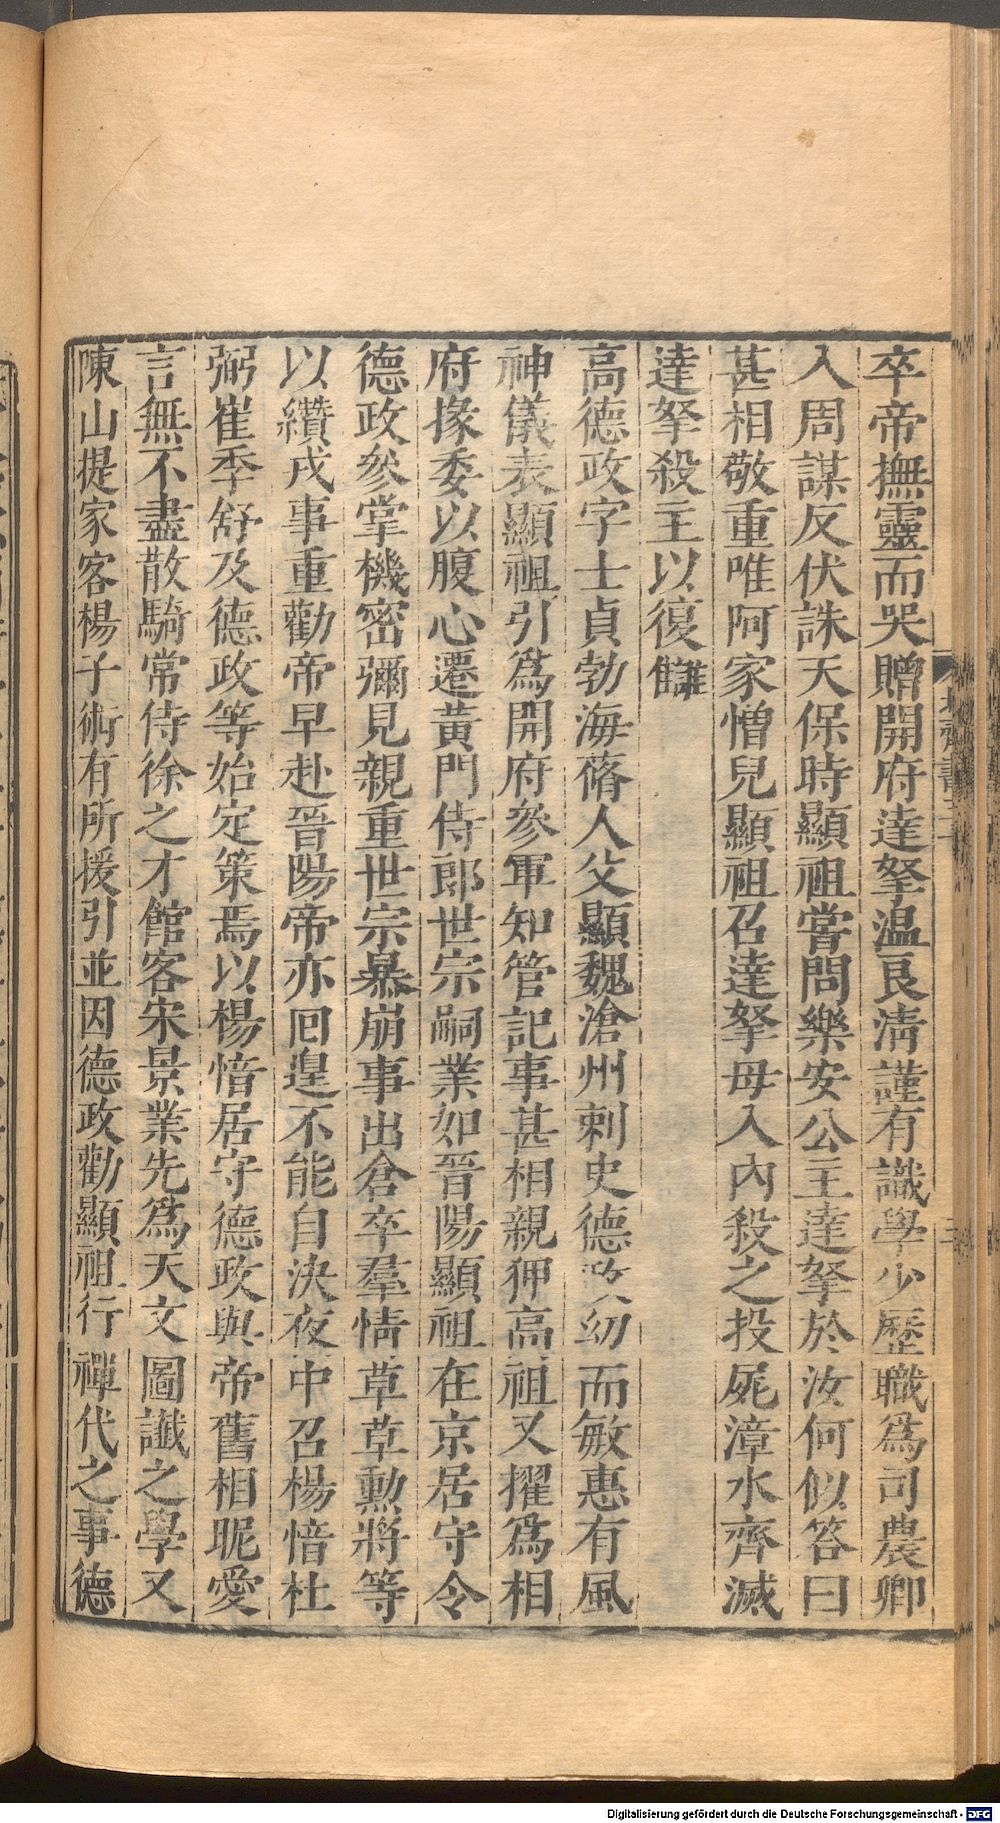 卒帝撫靈而哭贈開府達拏温良淸謹有識學少歷職爲司農卿
入周謀反伏誅天保時顯祖嘗問樂安公主達拏於汝何似答曰
甚相敬重唯阿家憎兒顯祖召達拏母入內殺之投屍漳水齊滅
達拏殺主以復讎
高德政字士貞勃海蓨人父顯魏滄州刺史德政幼而敏惠有風
神儀表顯祖引爲開府參軍知管記事甚相親狎高祖又擢爲相
府掾委以腹心遷黃門侍郎世宗嗣業如晉陽顯祖在京居守令
德政參掌機密彌見親重世宗暴崩事出倉卒羣情草草勳將等
以纘戎事重勸帝早赴晉陽帝亦囘遑不能自決夜中召楊愔杜
弼崔季舒及德政等始定策焉以楊愔居守德政與帝舊相昵愛
言無不盡散騎常侍徐之才館客宋景業先爲天文圖讖之學又
陳山提家客楊子術有所援引並因德政勸顯祖行禪代之事德
Digitalisierung gefördert durch die Deutsche Forschungsgemeinschaft - DFG